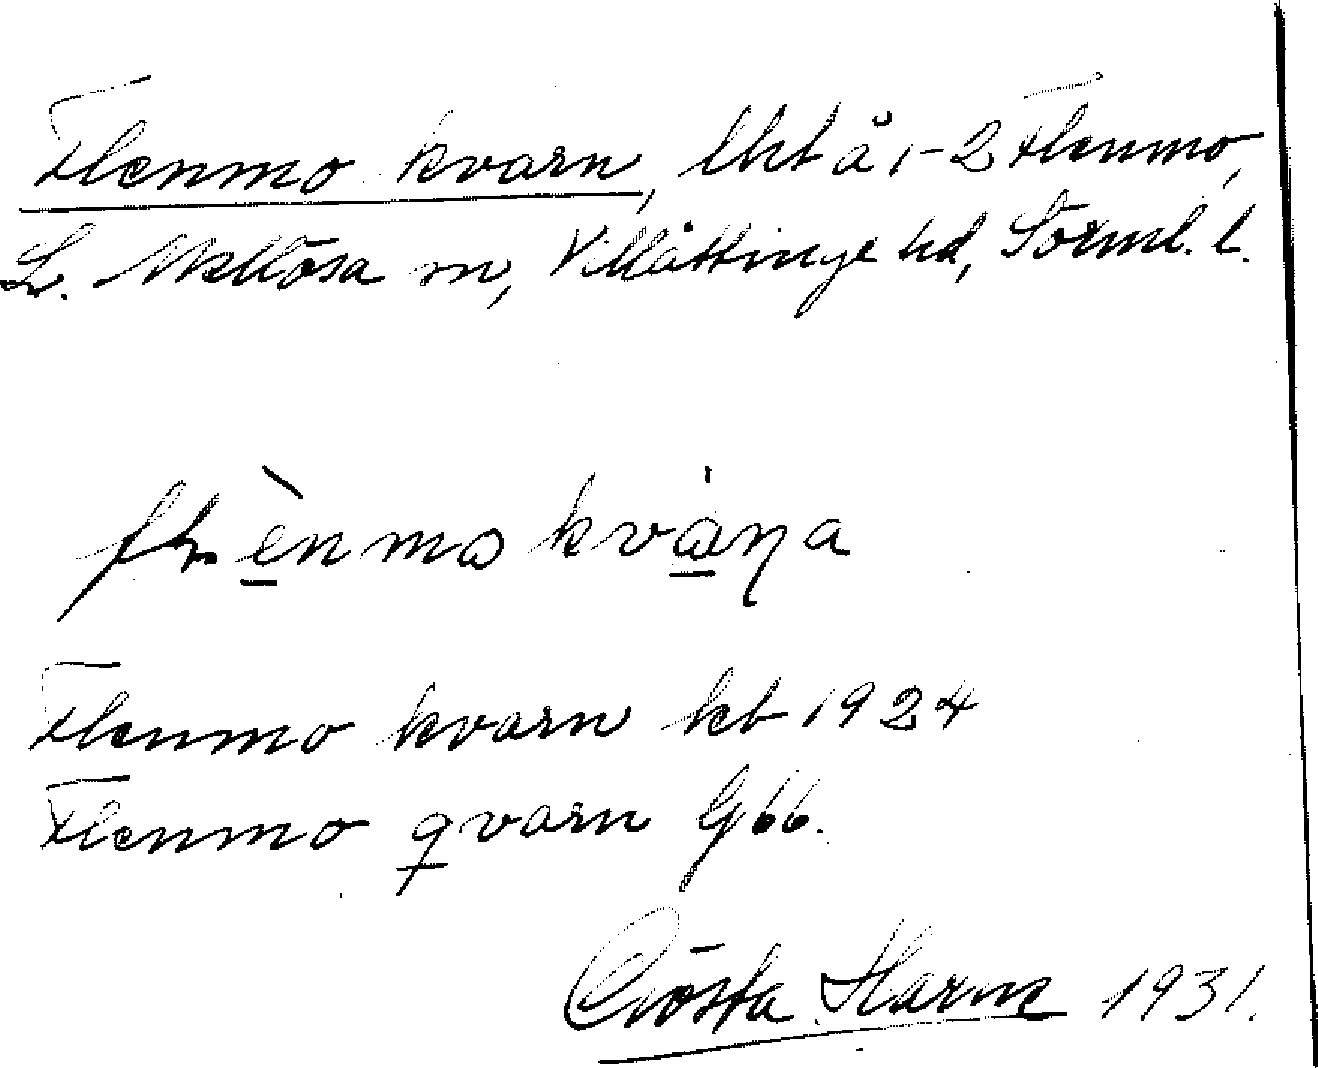 Flenmo kvarn, lht å 1-2 Flenmo,
L. Mellösa sn, Villåttinge hd, Sörml. l.
Flenmo kvarn kb 1924
Flenmo qvarn G66.
Gösta Harm 1931.